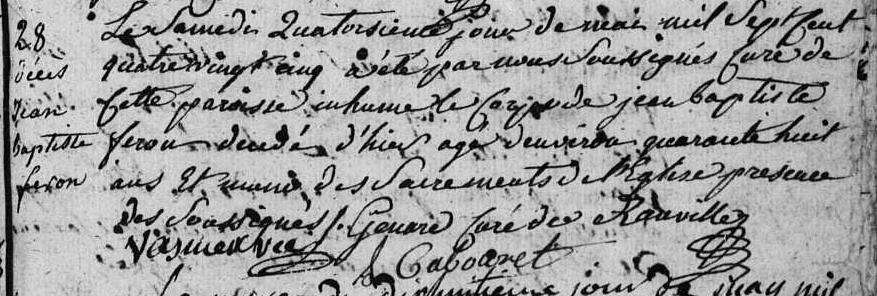 28
décès
Jean
baptiste
feron
Le Samedi Quatorsieme jour de mai mil Sept Cent
quatrevingt cinq a été par nous Soussignés Curé de
Cette paroisse inhumé le Corps de jean baptiste
feron decedé d'hier agé denviron quarante huit
ans Et muni des Sacrements de l'Eglise presence
des Soussignés J. Genard Curé de Ranville
jour de may mil